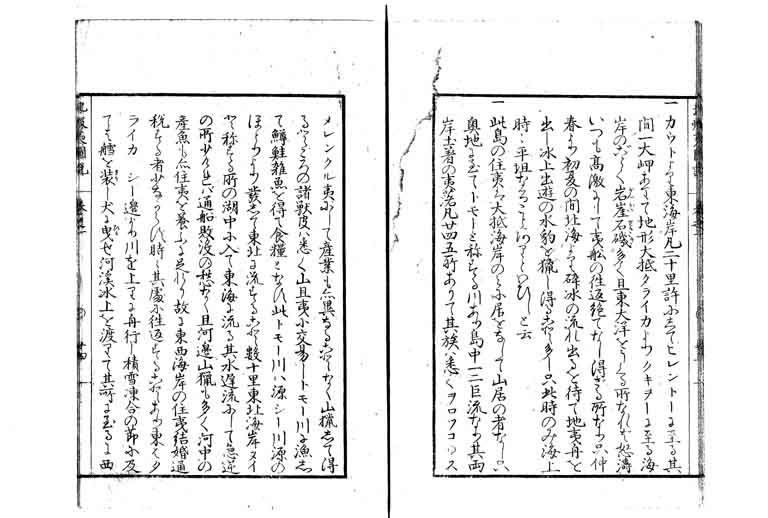 一カウトより東海岸凡二十里許にしてヒレントーに至る其
間一大岬ありて地形大抵クライカよりクキヲーに至る海
岸のごとく岩崖石磯多く且東大洋をうくる所なれば怒濤
いつも高激にして夷船の往返絶てなし得ざる所なり只仲
春より初夏の間北海より砕氷の流れ出るを待て地夷舟を
出し氷上出遊の水豹を猟し得ること多し只此時のみ海上
時に平坦なること有といひしと云
一此島の住夷大抵海岸のミに居をなして山居の者なし只
奥地に至てトモーと称する川あり島中一二巨流なり其両
岸土着の夷落凡廿四五所ありて其族は悉くヲロツコ ス
メレンクル夷にして産業も亦異なることなく山猟して得
るところの諸獣皮は悉く山且夷に交易しトモー川に漁し
て鱒鮭雑魚を得て食糧となす此トモー川は源シー川源の
ほとりより発して東北に流るること数十里東北海岸タイ
と称する所の湖中に入て東海に流る其水遅流にして急逆
の所少ければ通船敗没の愁なく且河邊山猟も多く河中の
産魚も亦住夷を養ふに足れり故に東西海岸の住夷結婚通
税する者少なからず時々其處に往返することあり東はタ
ライカ シー邊より川を上りて舟行し積雪凍合の節に及
ても艝を装し犬に曳せ河渓氷上を渡りて其所に至るに西